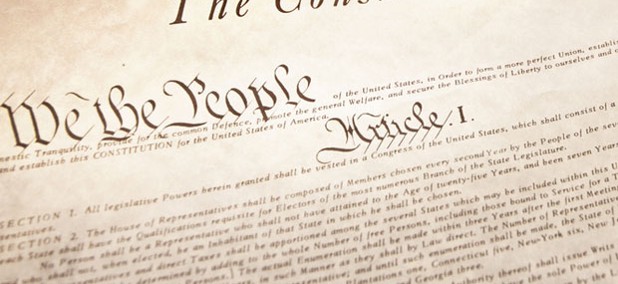 The Cons
We the People of the United States, in Order to form a more perfect Union, establis
mestic Tranquility, provide for the common Defence, promote the general Welfare, and secure the Blessings of Liberty to ourselves and o
and establish this CONSTITUTION for the United States of America.
Article. I.
SECTION 1. All legislative Powers herein granted shall be vested in a Congress of the United States, which shall consist of a
ntatives.
SECTION 2. The House of Representatives shall be composed of Members chosen every second Year by the People of the sev
each State shall have the Qualifications requisite for Electors of the most numerous Branch of the State Legislature.
No Person shall be a Representative who shall not have attained to the Age of twenty-five Years, and been seven Years
and who shall not, when elected, be an Inhabitant of that State in which he shall be chosen.
Representatives and direct Taxes shall be apportioned among the several States which may be included within this U
determined by adding to the whole Number of free Persons, including those bound to Service for a T
Persons. The actual Enumeration shall be made within three Years after the first Meeting
in such Manner as they shall by Law direct. The Number of Representative
and until such enumeration shall be made, the State of
Plantations one, Connecticut five, New-York six, New J
and Georgia three.
Authority thereof shall issue Writs
the sole Power of